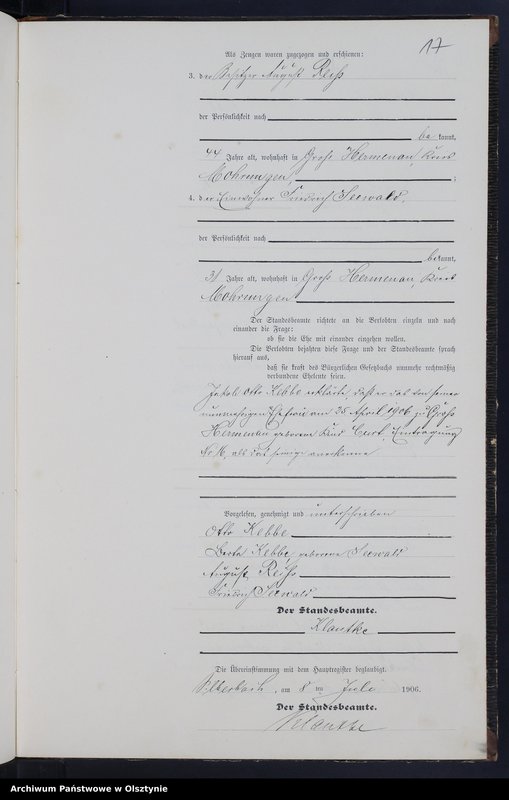 17
Als Zeugen waren zugezogen und erschienen:
3. der Besitzer August Reiß
der Persönlichkeit nach
be kannt,
44 Jahre alt, wohnhaft in Groß Hermenau, Kreis
Mohrungen;
4. der Einwohner Friedrich Seewald,
der Persönlichkeit nach
bekannt,
31 Jahre alt, wohnhaft in Groß Hermenau, Kreis
Mohrungen.
Der Standesbeamte richtete an die Verlobten einzeln und nach
einander die Frage:
ob sie die Ehe mit einander eingehen wollen.
Die Verlobten bejahten diese Frage und der Standesbeamte sprach
hierauf aus,
daß sie kraft des Bürgerlichen Gesetzbuchs nunmehr rechtmäßig
verbundene Eheleute seien.
Otto Kebbe erklärte, daß er das von seiner
nunmehrigen Ehefrau am 25 April 1906 zu Groß
Hermenau geborene Kind Curt, Eintragung
No 16, als das seinige anerkenne
Vorgelesen, genehmigt und unterschrieben
Otto Kebbe
Berta Kebbe geborene Seewald
August Reiß
Friedrich Seewald
Der Standesbeamte.
Klautke
Die Übereinstimmung mit dem Hauptregister beglaubigt.
Silberbach, am 8 ten Juli 1906.
Der Standesbeamte.
Klautke
Archiwum Państwowe w Olsztynie